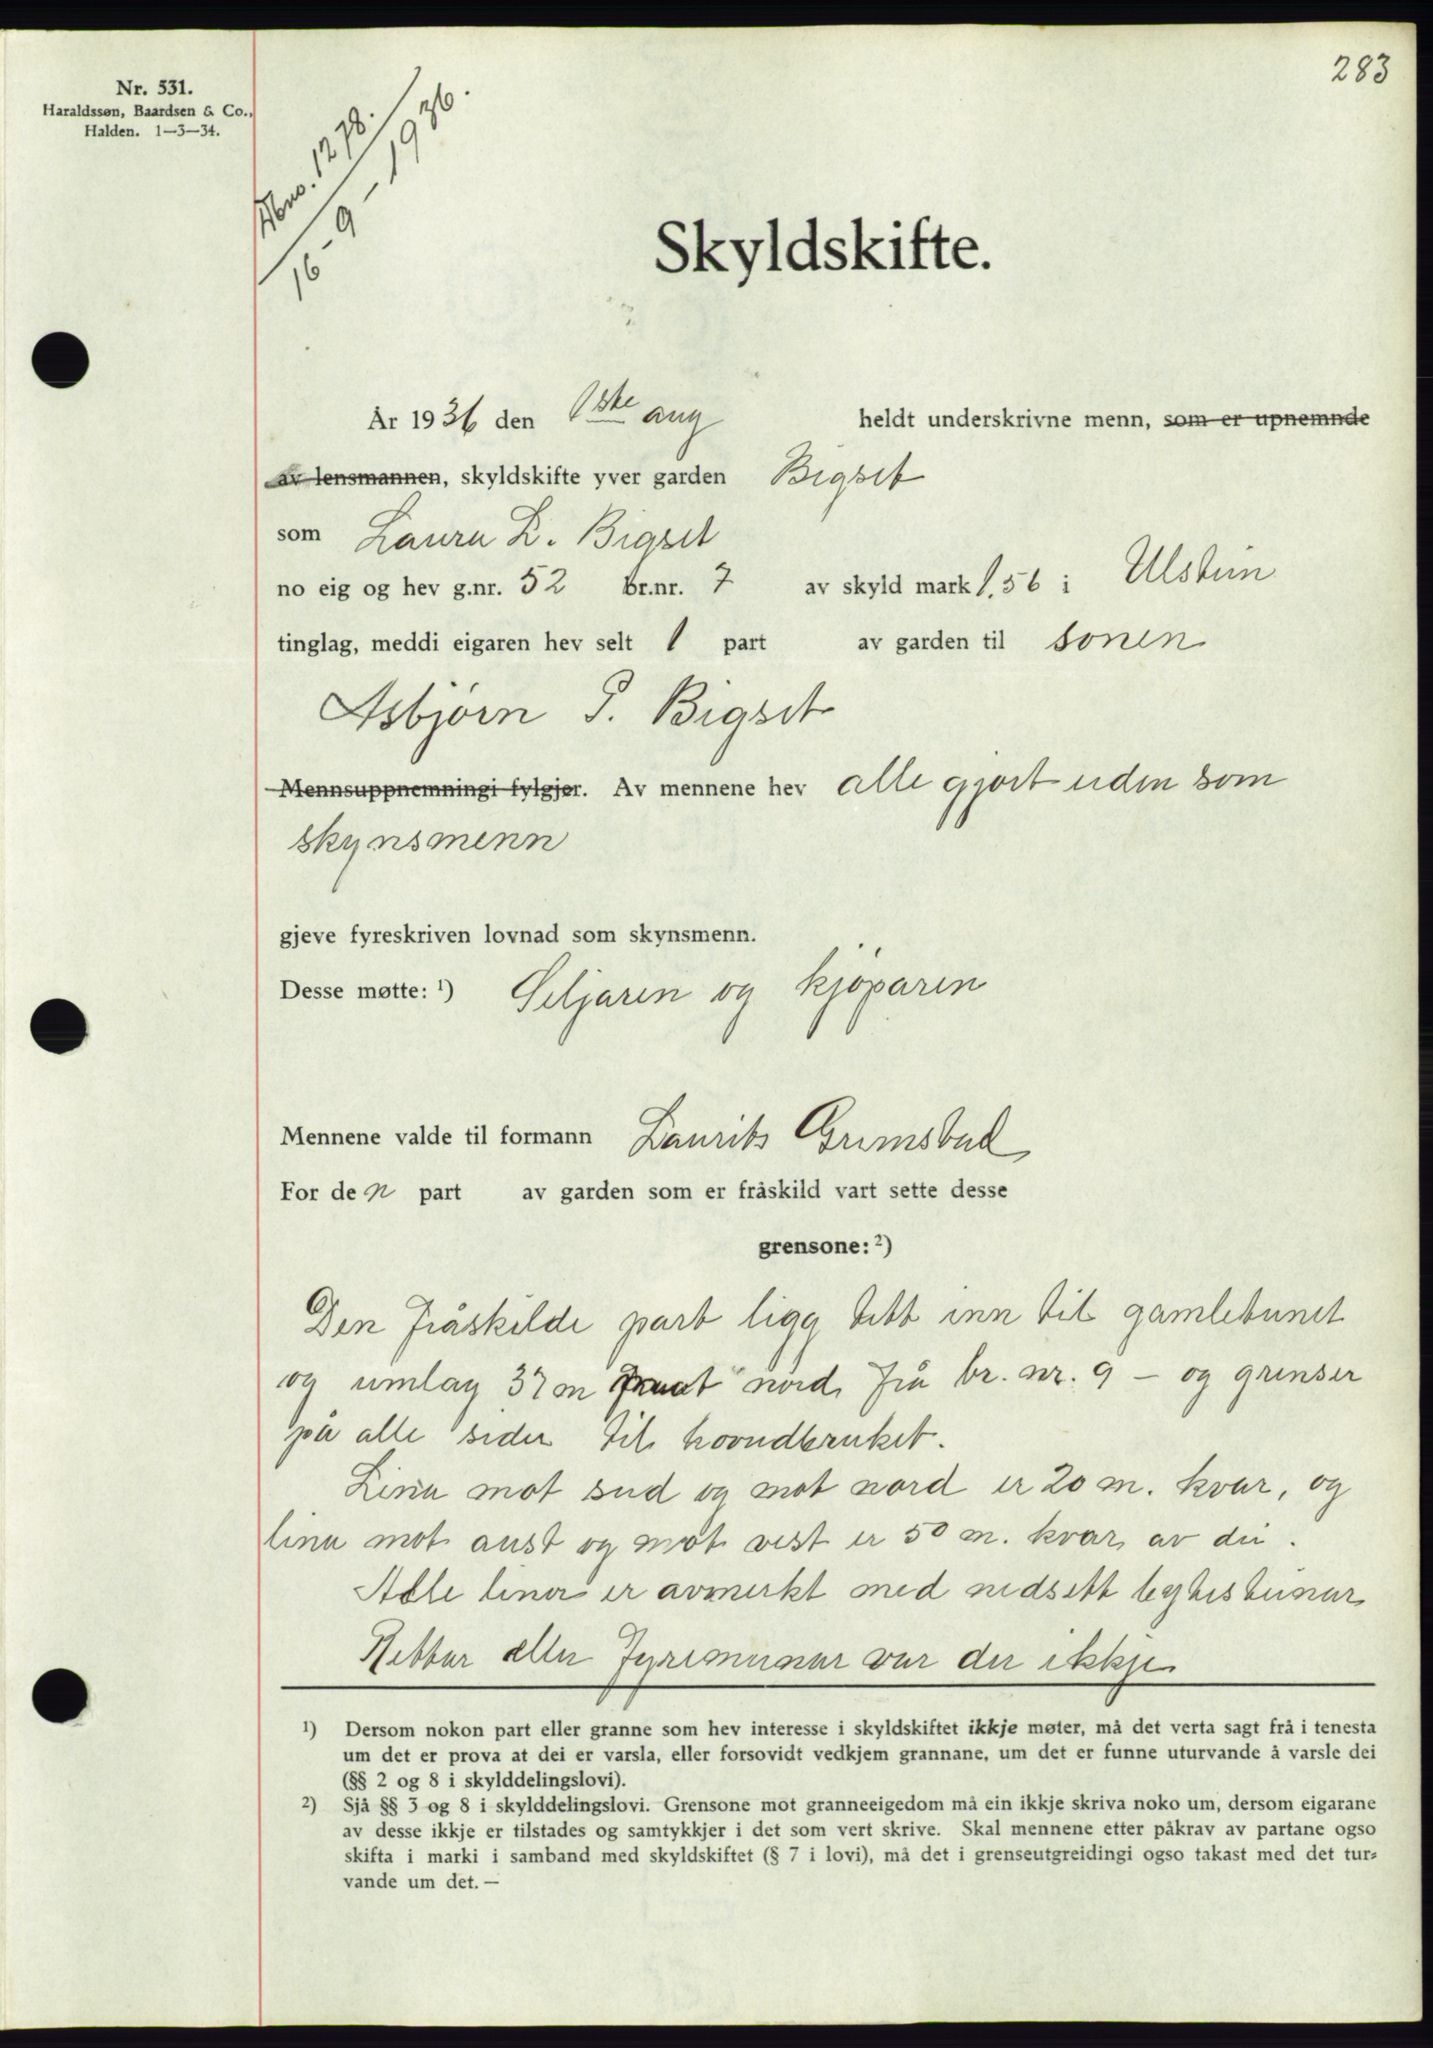 283
Nr. 531.
Haraldssøn, Baardsen & Co.,
Halden. 1—3—34.
Dbno. 1278.
16-9-1936.
Skyldskifte.
År 1936 den 1ste aug heldt underskrivne menn, som er upnemnde
av lensmannen, skyldskifte yver garden Bigset
som Laura L. Bigset
no eig og hev g.nr. 52 br.nr. 7 av skyld mark 1.56 i Ulstein
tinglag, meddi eigaren hev selt 1 part av garden til sonen
Asbjørn P. Bigset
Mennsuppnemningi fylgjer. Av mennene hev alle gjort eiden som
skynsmenn
gjeve fyreskriven lovnad som skynsmenn.
Desse møtte: ¹) Seljaren og kjøparen
Mennene valde til formann Laurits Grimstad
For den part av garden som er fråskild vart sette desse
grensone: ²)
Den fråskilde part ligg tett inn til gamletunet
og umlag 37 m nord frå br. nr. 9 – og grenser
på alle sider til hovudbruket.
Lina mot sud og mot nord er 20 m. kvar, og
lina mot aust og mot vest er 50 m. kvar av dei.
Alle liner er avmerkt med nedsett bytesteinar
Rettar eller fyremunar var der ikkje
¹) Dersom nokon part eller granne som hev interesse i skyldskiftet ikkje møter, må det verta sagt frå i tenesta
um det er prova at dei er varsla, eller forsovidt vedkjem grannane, um det er funne uturvande å varsle dei
(§§ 2 og 8 i skylddelingslovi).
²) Sjå §§ 3 og 8 i skylddelingslovi. Grensone mot granneeigedom må ein ikkje skriva noko um, dersom eigarane
av desse ikkje er tilstades og samtykkjer i det som vert skrive. Skal mennene etter påkrav av partane ogso
skifta i marki i samband med skyldskiftet (§ 7 i lovi), må det i grenseutgreidingi ogso takast med det tur-
vande um det. —